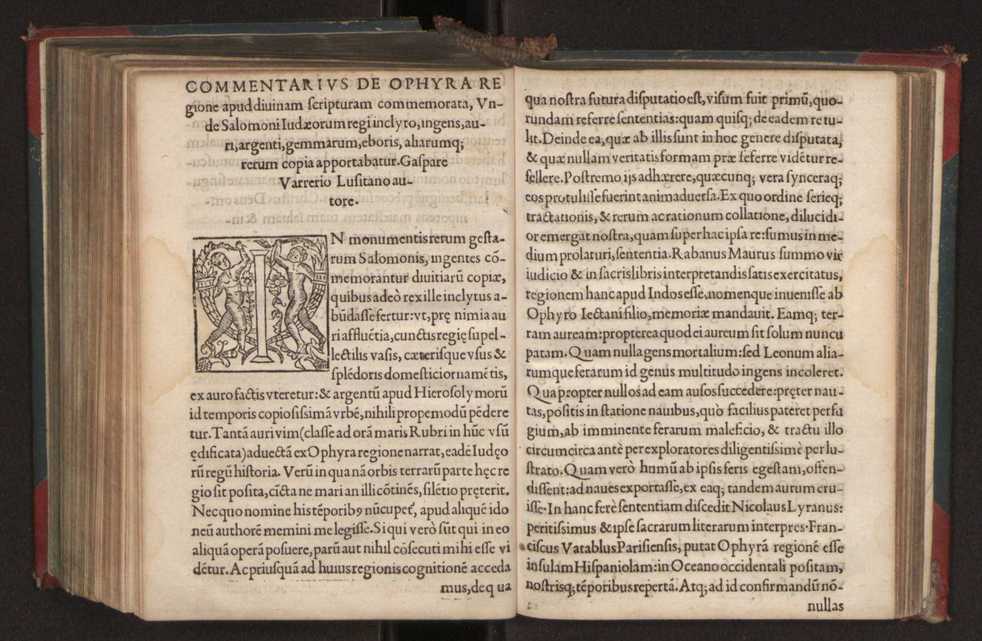 COMMENTARIVS DE OPHYRA RE
gione apud diuinam scripturam commemorata, Vn-
de Salomoni Iudæorum regi inclyto, ingens, au-
ri, argenti, gemmarum, eboris, aliarumq;
rerum copia apportabatur. Gaspare
Varrerio Lusitano au-
tore.
IN monumentis rerum gesta-
rum Salomonis, ingentes cō-
memorantur diuitiarū copiæ,
quibus adeò rex ille inclytus a-
būdasse fertur: vt, prę nimia au
ri affluētia, cunctis regię supel-
lectilis vasis, cæterisque vsus &
splēdoris domestici ornamētis,
ex auro factis vteretur: & argentū apud Hierosolymorū
id temporis copiosissimā vrbē, nihili propemodū pēdere
tur. Tantā auri vim (classe ad orā maris Rubri in hūc vsū
ędificata) aduectā ex Ophyra regione narrat, eadē Iudęo
rū regū historia. Verū in qua nā orbis terrarū parte hęc re
gio sit posita, cīcta ne mari an illi cōtinēs, silētio pręterit.
Nec quo nomine his tēporibꝰ nūcupet̃, apud aliquē ido
neū authorē memini me legisse. Si qui verò sūt qui in eo
aliquā operā posuere, parū aut nihil cōsecuti mihi esse vi
dētur. Ac priusquā ad huius regionis cognitionē acceda
mus, de q ua
qua nostra futura disputatio est, visum fuit primū, quo-
rundam referre sententias: quam quisq; de eadem retu-
lit. Deinde ea, quæ ab illis sunt in hoc genere disputata,
& quæ nullam veritatis formam præ se ferre vidētur re-
fellere. Postremo ijs adhærere, quæcunq; vera synceraq;
eos protulisse fuerint animaduersa. Ex quo ordine serieq;
tractationis, & rerum ac rationum collatione, dilucidi-
or emergat nostra, quam super hac ipsa re: sumus in me-
dium prolaturi, sententia. Rabanus Maurus summo vir
iudicio & in sacris libris interpretandis satis exercitatus,
regionem hanc apud Indos esse, nomenque inuenisse ab
Ophyro Iectani filio, memoriæ mandauit. Eamq; ter-
ram auream: propterea quod ei aureum sit solum nuncu
patam. Quam nulla gens mortalium: sed Leonum alia-
rumque ferarum id genus multitudo ingens incoleret.
Quapropter nullos ad eam ausos succedere: pręter nau-
tas, positis in statione nauibus, quò facilius pateret perfu
gium, ab imminente ferarum maleficio, & tractu illo
circumcirca antè per exploratores diligentissimè perlu-
strato. Quam verò humū ab ipsis feris egestam, offen-
dissent: ad naues exportasse, ex eaq; tandem aurum eru-
isse. In hanc ferè sententiam discedit Nicolaus Lyranus:
peritissimus & ipse sacrarum literarum interpres. Fran-
ciscus Vatablus Parisiensis, putat Ophyrā regionē esse
insulam Hispaniolam: in Oceano occidentali positam,
nostrisq; tēporibus repertā. Atq; ad id confirmandū nō-
nullas